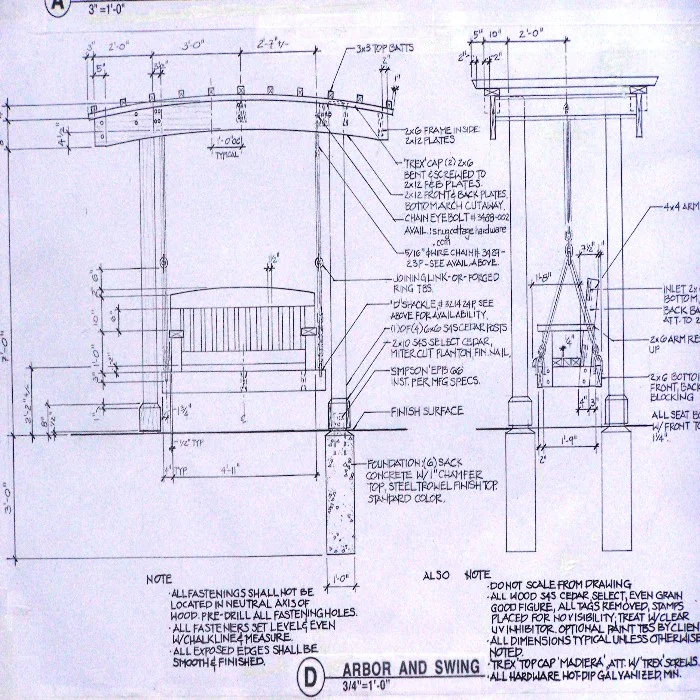 A
3"=1'-0"
3"
2'-0"
3'-0"
2'-7" +/-
3X3 TOP BATTS
5"
2"
1"
5"
10"
2'-0"
2"
2"
4 1/2"
1'-0"OC
TYPICAL
2X6 FRAME INSIDE
2X12 PLATES
'TREX' CAP (2) 2X6
BENT & SCREWED TO
2X12 F&B PLATES.
2X12 FRONT & BACK PLATES,
BOTTOM ARCH CUTAWAY.
CHAIN EYEBOLT # 3488-002
AVAIL: snugcottagehardware
.com
5/16" ∅ WIRE CHAIN # 3489-
23P - SEE AVAIL. ABOVE.
JOINING LINK -OR- FORGED
RING TBS.
'D' SHACKLE, # 321424P, SEE
ABOVE FOR AVAILABILITY.
(1) OF (4) 6X6 S4S CEDAR POSTS
2X10 S4S SELECT CEDAR,
MITER CUT PLANT ON, FIN. NAIL.
SIMPSON EPB 66
INST. PER MFG SPECS.
FINISH SURFACE
FOUNDATION: (6) SACK
CONCRETE W/ 1" CHAMFER
TOP, STEEL TROWEL FINISH TOP.
STANDARD COLOR.
4X4 ARM
7 1/2"
1"
1'-8"
INLET 2X
BOTTOM,
BACK BA
ATT. TO 2
2X6 ARM RE
UP
2X6 BOTTO
FRONT, BACK
BLOCKING
ALL SEAT BO
W/ FRONT TO
1 1/4".
4"
3"
1'-9"
2"
1/2"
6"
2"
10"
6"
1'-0"
3"
7'-0"
2'-2"
8"
1"
1 3/4"
1/2" TYP
4" TYP
4'-11"
3'-0"
1'-0"
NOTE
· ALL FASTENINGS SHALL NOT BE
LOCATED IN NEUTRAL AXIS OF
WOOD. PRE-DRILL ALL FASTENING HOLES.
· ALL FASTENERS SET LEVEL & EVEN
W/ CHALKLINE & MEASURE.
· ALL EXPOSED EDGES SHALL BE
SMOOTH & FINISHED.
ALSO NOTE
· DO NOT SCALE FROM DRAWING
· ALL WOOD S4S CEDAR SELECT, EVEN GRAIN
GOOD FIGURE, ALL TAGS REMOVED, STAMPS
PLACED FOR NO VISIBILITY, TREAT W/ CLEAR
UV INHIBITOR. OPTIONAL PAINT TBS BY CLIEN
· ALL DIMENSIONS TYPICAL UNLESS OTHERWISE
NOTED.
· 'TREX' TOP CAP 'MADIERA', ATT. W/ 'TREX' SCREWS.
· ALL HARDWARE HOT-DIP GALVANIZED, MIN.
D
ARBOR AND SWING
3/4"=1'-0"